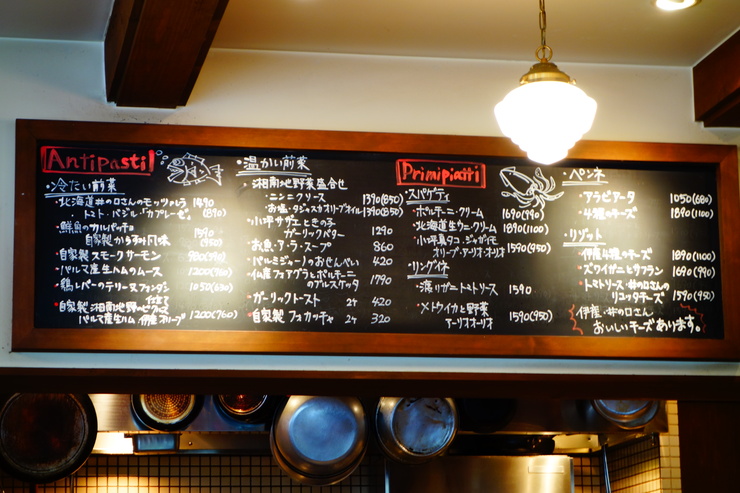 Antipasti
・冷たい前菜
・北海道井の口さんのモッツァレラ 1490
トマト・バジル「カプレーゼ」 (890)
・鮮魚のカルパッチョ 1590
自家製からすみ風味 (950)
・自家製スモークサーモン 980(590)
・パルマ産生ハムのムース 1200(760)
・鶏レバーのテリーヌ 1050(630)
・自家製湘南地野菜ピクルス
パルマ産生ハム 伊産オリーブ 1200(760)
・温かい前菜
・湘南地野菜盛合せ
・ニンニクソース 1390(850)
・お塩・タジャスカオリーブオイル 1390(850)
・小坪サザエときのこ 1290
ガーリックバター
・お魚・ラ・スープ 860
・パルミジャーノのおせんべい 420
・仏産フォアグラとポルチーニ 1790
のブルスケッタ
・ガーリックトースト 2ケ 420
・自家製 フォカッチャ 2ケ 320
Primipiatti
・スパゲティ
・ポルチーニ・クリーム 1690(990)
・北海道生ウニクリーム 1890(1100)
・小坪真タコ・ジャガイモ 1590(950)
オリーブ・アーリオオーリオ
・リングイネ
・渡りガニトマトソース 1590
・メトウイカと野菜 1590(950)
アーリオオーリオ
・ペンネ
・アラビアータ 1050(680)
・4種のチーズ 1890(1100)
・リゾット
・伊産4種のチーズ 1890(1100)
・ズワイガニとサフラン 1690(990)
・トマトソース・井の口さん
リコッタチーズ 1590(950)
伊産・井の口さん
おいしいチーズあります。